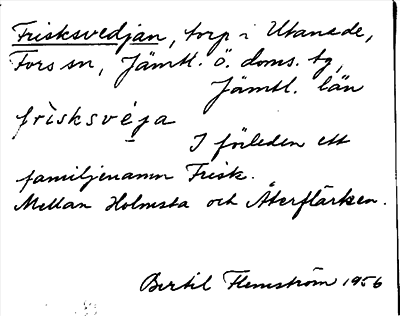 Frisksvedjan, torp i Utanede,
Fors sn, Jämtl. ö. doms. tg,
Jämtl. län
frìsksvé̱ja
I förleden ett
familjenamn Frisk.
Mellan Holmsta och Återflärken.
Bertil Flemström 1956